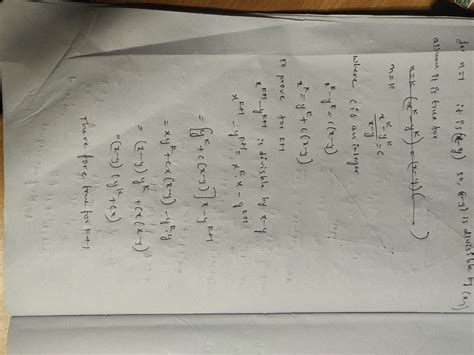 for n=1 it is (x-y) so, (x-y) is divisible by (x-y)
assume it is true for
n=k (x^k - y^k) = (x-y)(——)
m=k
x^k - y^k / x-y = c
where c is an integer
x^k - y^k = c(x-y)
x^k = y^k + c(x-y)
to prove for k+1
x^{k+1} - y^{k+1} is divisible by x-y
x^{k+1} - y^{k+1} = x^k . x - y^{k+1}
= [y^k + c(x-y)] x - y^{k+1}
= xy^k + cx(x-y) - y^k . y
= (x-y) y^k + cx(x-y)
= (x-y) (y^k + cx)
Therefore, true for k+1